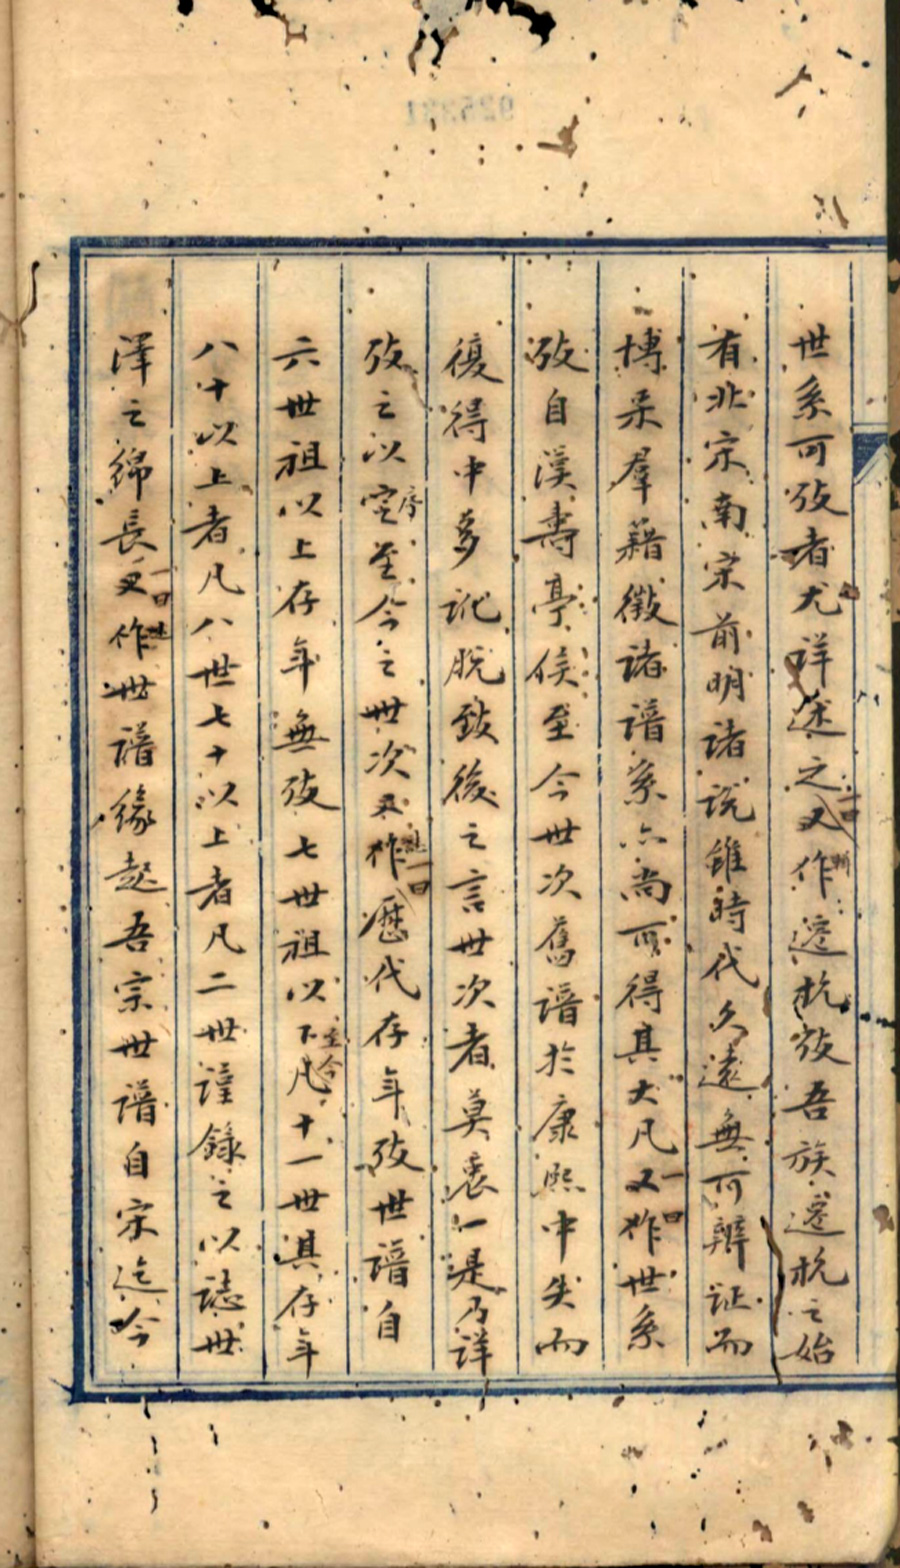 世系可攷者尤詳述之又作遷杭攷吾族遷杭之始
有北宋南宋前明諸說雖時代久遠無可辨証而
博采羣籍徵諸譜系亦尚可得其大凡又作世系
攷自漢壽亭侯至今世次舊譜於康熙中失而
復得中多訛脫致後之言世次者莫衷一是乃詳
攷之以定序至今之世次又作歷代存年攷世譜自
六世祖以上存年無攷七世祖以下至今凡十一世具存年
八十以上者凡八世七十以上者凡二世謹錄之以誌世
澤之綿長又作世譜緣起吾宗世譜自宋迄今
925331